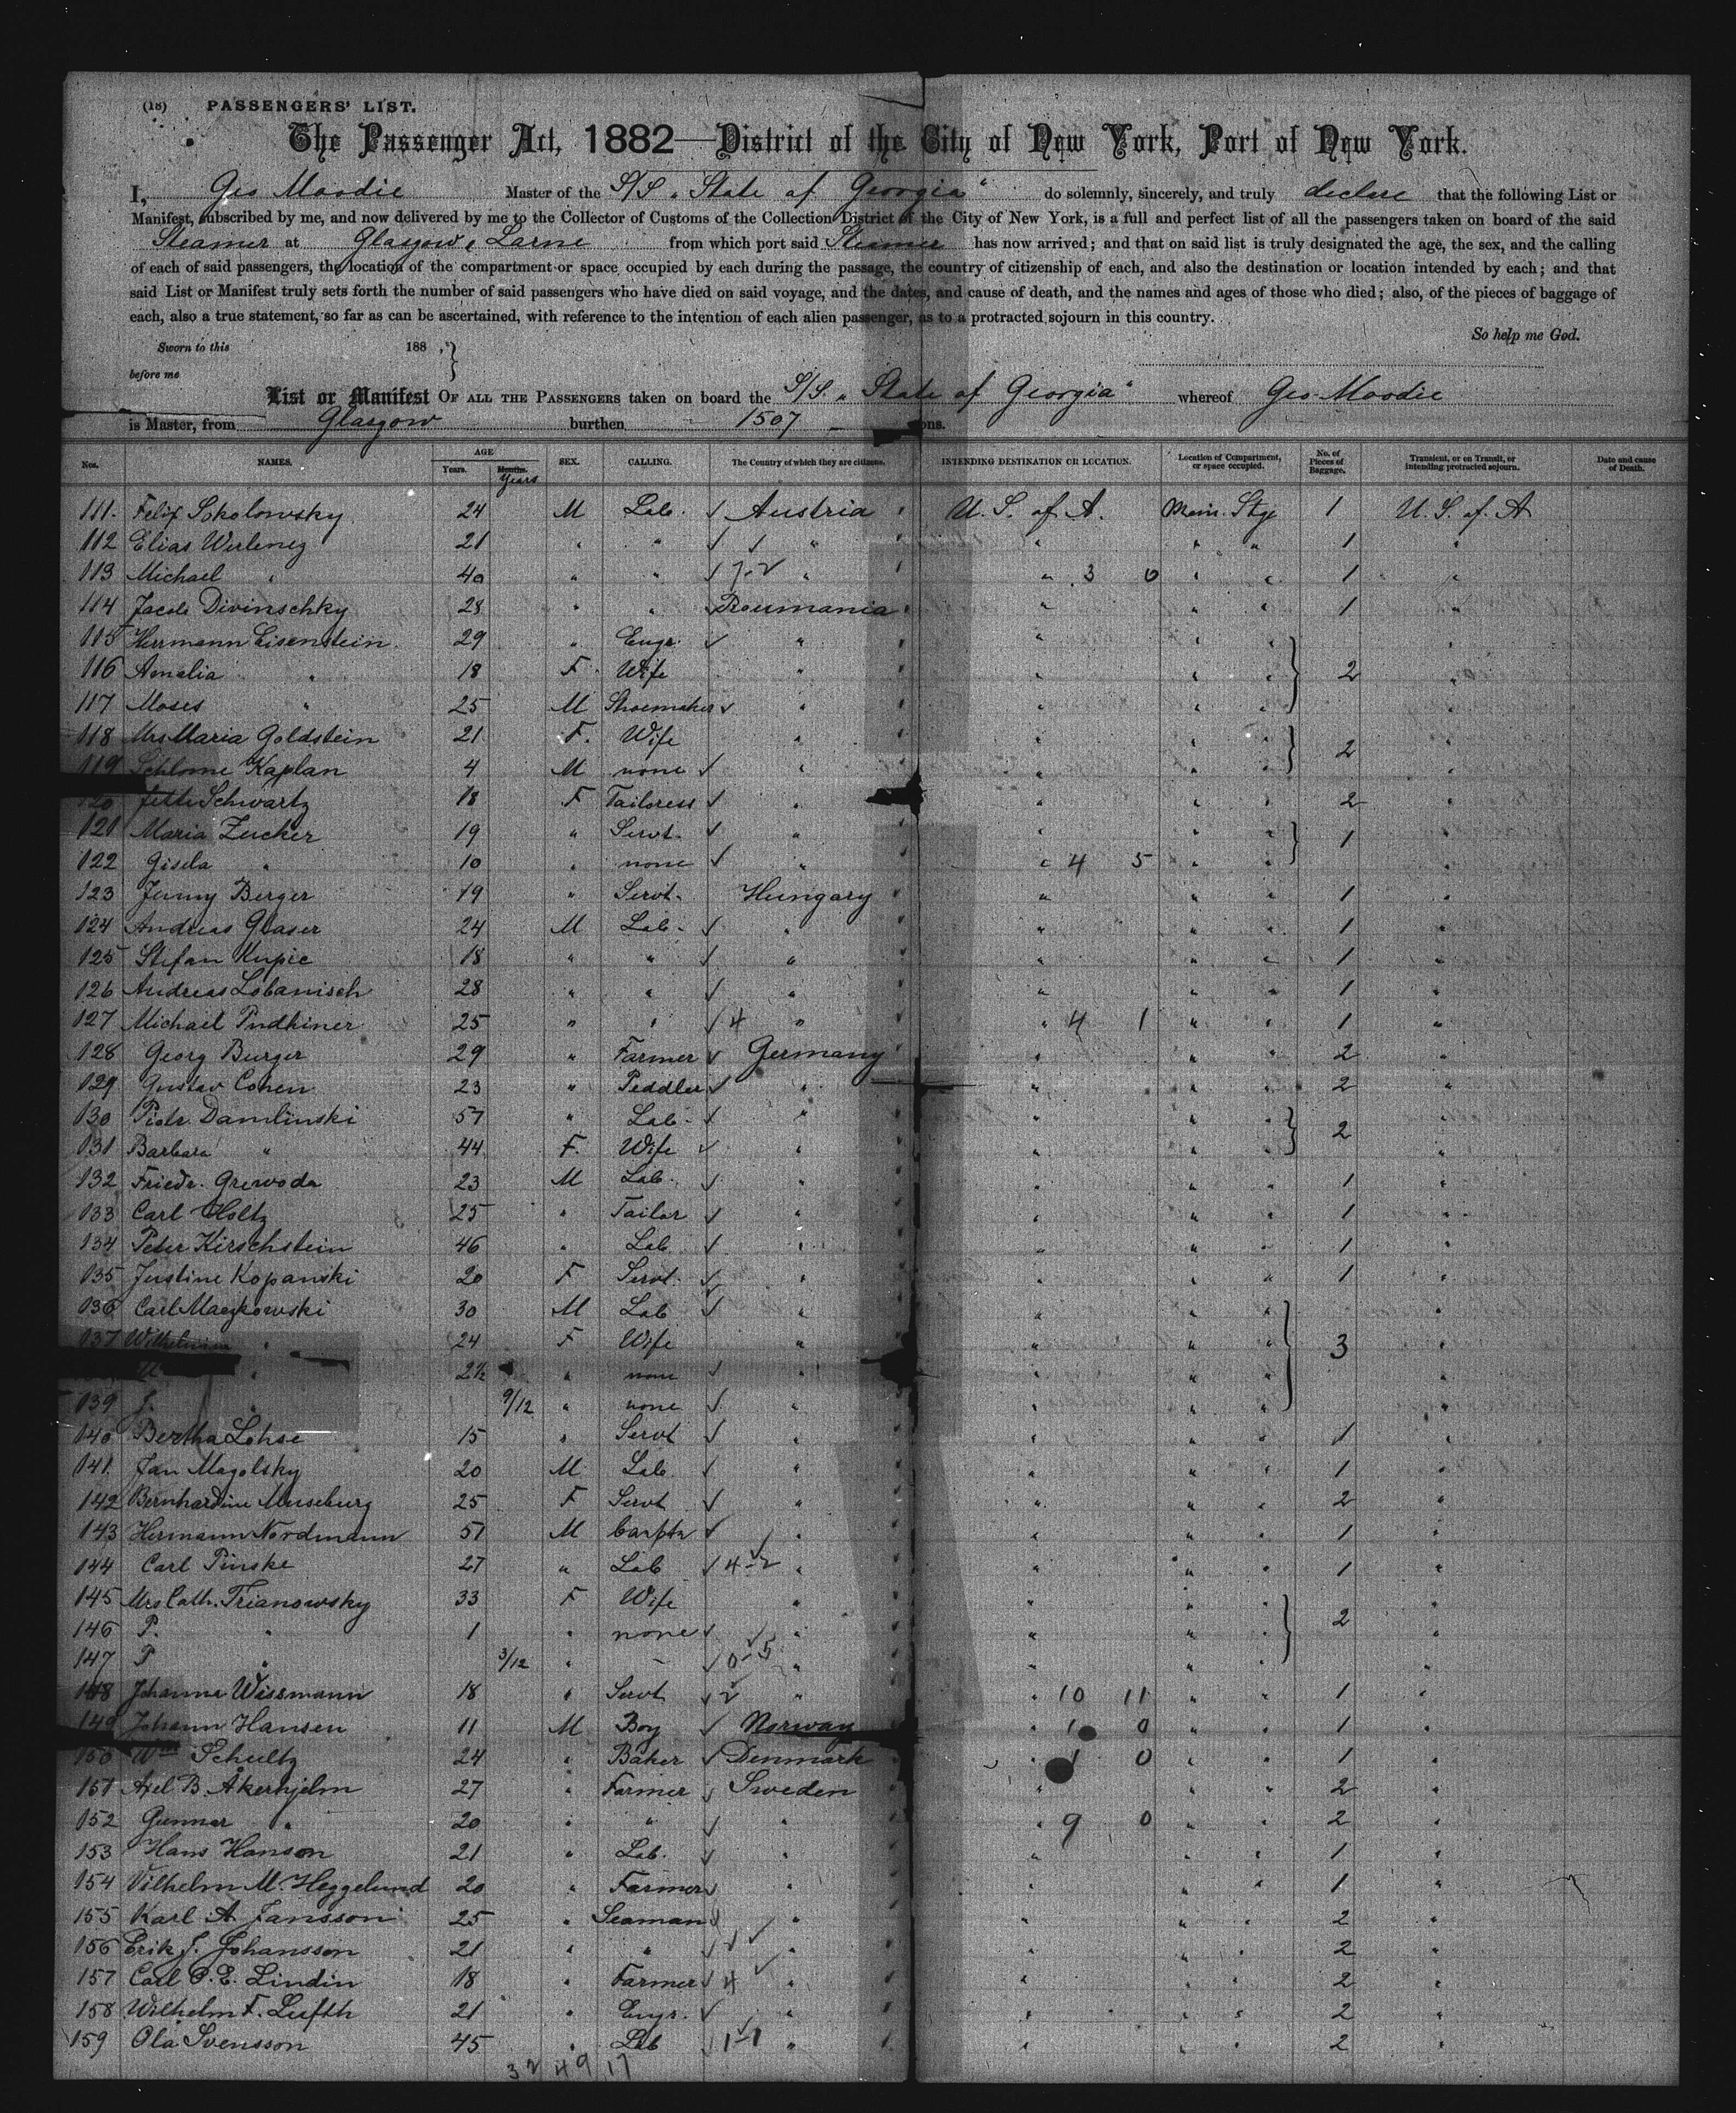 (18) PASSENGERS' LIST.
The Passenger Act, 1882—District of the City of New York, Port of New York.
I, Geo Moodie Master of the S/S "State of Georgia" do solemnly, sincerely, and truly declare that the following List or
Manifest, subscribed by me, and now delivered by me to the Collector of Customs of the Collection District of the City of New York, is a full and perfect list of all the passengers taken on board of the said
Steamer at Glasgow & Larne from which port said Steamer has now arrived; and that on said list is truly designated the age, the sex, and the calling
of each of said passengers, the location of the compartment or space occupied by each during the passage, the country of citizenship of each, and also the destination or location intended by each; and that
said List or Manifest truly sets forth the number of said passengers who have died on said voyage, and the dates, and cause of death, and the names and ages of those who died; also, of the pieces of baggage of
each, also a true statement, so far as can be ascertained, with reference to the intention of each alien passenger, as to a protracted sojourn in this country.
So help me God.
Sworn to this 188
before me
List or Manifest OF ALL THE PASSENGERS taken on board the S/S. "State of Georgia" whereof Geo Moodie
is Master, from Glasgow burthen 1507 tons.
Nos. NAMES. AGE Years. Months. Years SEX. CALLING. The Country of which they are citizens. INTENDING DESTINATION OR LOCATION. Location of Compartment, or space occupied. No. of Pieces of Baggage. Transient, or on Transit, or intending protracted sojourn. Date and cause of Death.
111. Felix Sokolowsky 24 M Lab. ✓ Austria U. S. of A. Main. Stge 1 U. S. of A
112 Elias 21 " " ✓ " " " " 1 "
113 Michael " 40 " " ✓ 7-2 " " 3 0 " " 1 "
114 Jacob Divinschky 28 " " Roumania " " " 1 "
115 Herrmann Eisenstein 29 " Engr. ✓ " " " " "
116 Amalia " 18 F. Wife " " " " 2 "
117 Moses " 25 M Shoemaker ✓ " " " " "
118 Mrs Maria Goldstein 21 F. Wife " " " " 2 "
119 Schlome Kaplan 4 M none ✓ " " " " "
120 Jette Schwartz 18 F Tailoress ✓ " " " " 2 "
121 Maria Zucker 19 " Servt. ✓ " " " " 1 "
122 Gisela " 10 " none ✓ " " 4 5 " " "
123 Jenny Berger 19 " Servt. Hungary " " " 1 "
124 Andreas Glaser 24 M Lab. ✓ " " " " 1 "
125 Stefan Kupic 18 " " ✓ " " " " 1 "
126 Andreas Lobanisch 28 " " ✓ " " " " 1 "
127 Michael 25 " " ✓ 4 " " 4 1 " " 1 "
128 Georg Burger 29 " Farmer ✓ Germany " " " 2 "
129 Gustav Cohen 23 " Peddler ✓ " " " " 2 "
130 Piotr Damlinski 57 " Lab. ✓ " " " " 2 "
131 Barbara " 44 F. Wife ✓ " " " " "
132 Friedr. Grewoda 23 M Lab. ✓ " " " " 1 "
133 Carl Holtz 25 " Tailor ✓ " " " " 1 "
134 Peter Kirschstein 46 " Lab ✓ " " " " 1 "
135 Justine Kopanski 20 F Servt. ✓ " " " " 1 "
136 Carl Maczkowski 30 M Lab ✓ " " " " "
137 Wilhelmina " 24 F Wife " " " " 3 "
" 2½ " none ✓ " " " " "
139 J. " 9/12 " none ✓ " " " " "
140 Bertha Lohse 15 " Servt ✓ " " " " 1 "
141 Jan Magolsky 20 M Lab ✓ " " " " 1 "
142 Bernhardine Museburg 25 F Servt ✓ " " " " 2 "
143 Hermann Nordmann 51 M Carptr ✓ " " " " 1 "
144 Carl Pinske 27 " Lab ✓ 4-2 " " " " 1 "
145 Mrs Cath. Trianowsky 33 F Wife " " " " 2 "
146 P. " 1 " none ✓ " " " " "
147 P " 3/12 " – ✓ 0-5 " " " " "
148 Johanna Wissmann 18 " Servt ✓ 2 " " 10 11 " " 1 "
149 Johann Hansen 11 M Boy ✓ Norway " 1 0 " " 1 "
150 Wm Schultz 24 " Baker ✓ Denmark " 1 0 " " 1 "
151 Axel B. Åkerhjelm 27 " Farmer ✓ Sweden " " 2 "
152 Gunnar " 20 " " ✓ " " 9 0 " " 2 "
153 Hans Hanson 21 " Lab. ✓ " " " " 1 "
154 Vilhelm M. Heggelund 20 " Farmer ✓ " " " 1 "
155 Karl A. Jansson 25 " Seaman ✓ " " " " 2 "
156 Erik J. Johansson 21 " " ✓ " " " 2 "
157 Carl P. E. Lindin 18 " Farmer ✓ 4 " " " " 2 "
158 Wilhelm F. Lufth 21 " Engr. ✓ " " " " 2 "
159 Ola Svensson 45 " Lab ✓ 1-1 " " " 2 "
32 49 17